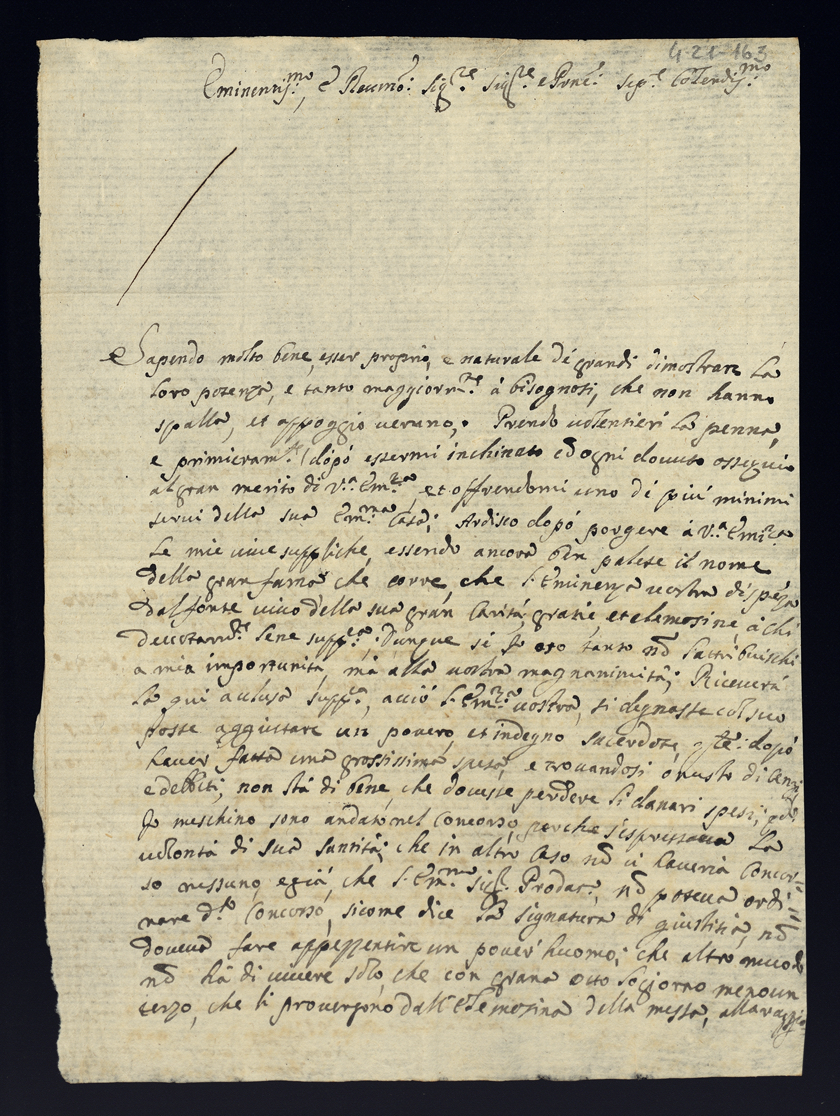 4-21-163
Eminentiss.mo, e Reu.mo: Sig.re Sig.re e Prnē: Sep.e Colendiss.mo:
Sapendo molto bene, esser proprio, e naturale dé grandi dimostrare la
loro potenza, e tanto maggiorm.te à bisognosi, che non hanno
spalla, et appoggio ueruno, Prendo uolentieri la penna,
e primieram.te (dopó essermi inchinato cō ogni douuto ossequio
al gran merito di V.a Em.za, et offrendomi uno dé piú minimi
serui della sua Em.ma Casa; Ardisco dopó porgere à V.a Em.za
le mie uiue suppliche, essendo ancora ben palese il nome
della gran fama che corre, che l'Eminenza uostra dispēza
dal fonte uiuo della sua gran Caritá gratie, et elemosine, à chi
deuotam.te sene supp.ca, Dunque se Jo oso tanto nō s'attribuischi
a mia importunitá, má alla uostra magnanimitá; Riceuerá
la qui aclusa supp.ca, acció l'Em.za uostra, si degnasse col suo
fosse aggiustare un pouero, et indegno sacerdote, dopó
hauer fatta una grossissima spesa, e trouandosi onusto di Cenzi
e debbiti, non stá di bene, che douesse perdere li danari spesi;
Jo meschino sono andato nel Concorso, perche s'espressaua la
uolontá di sua santitá; che in altro Caso nō ui haueria Concor=
so nessuno, e giá, che l'Em.mo Sig.re Prodat.o, nō poteua ordi=
nare d.to Concorso, sicome dice la signatura di giustitia, nō
doueua fare appezzentire un pouer' huomo; che altro modo
nō há di uiuere solo, che con grana otto lo giorno menoun
terzo, che li prouengono dall'elemosina della messa,